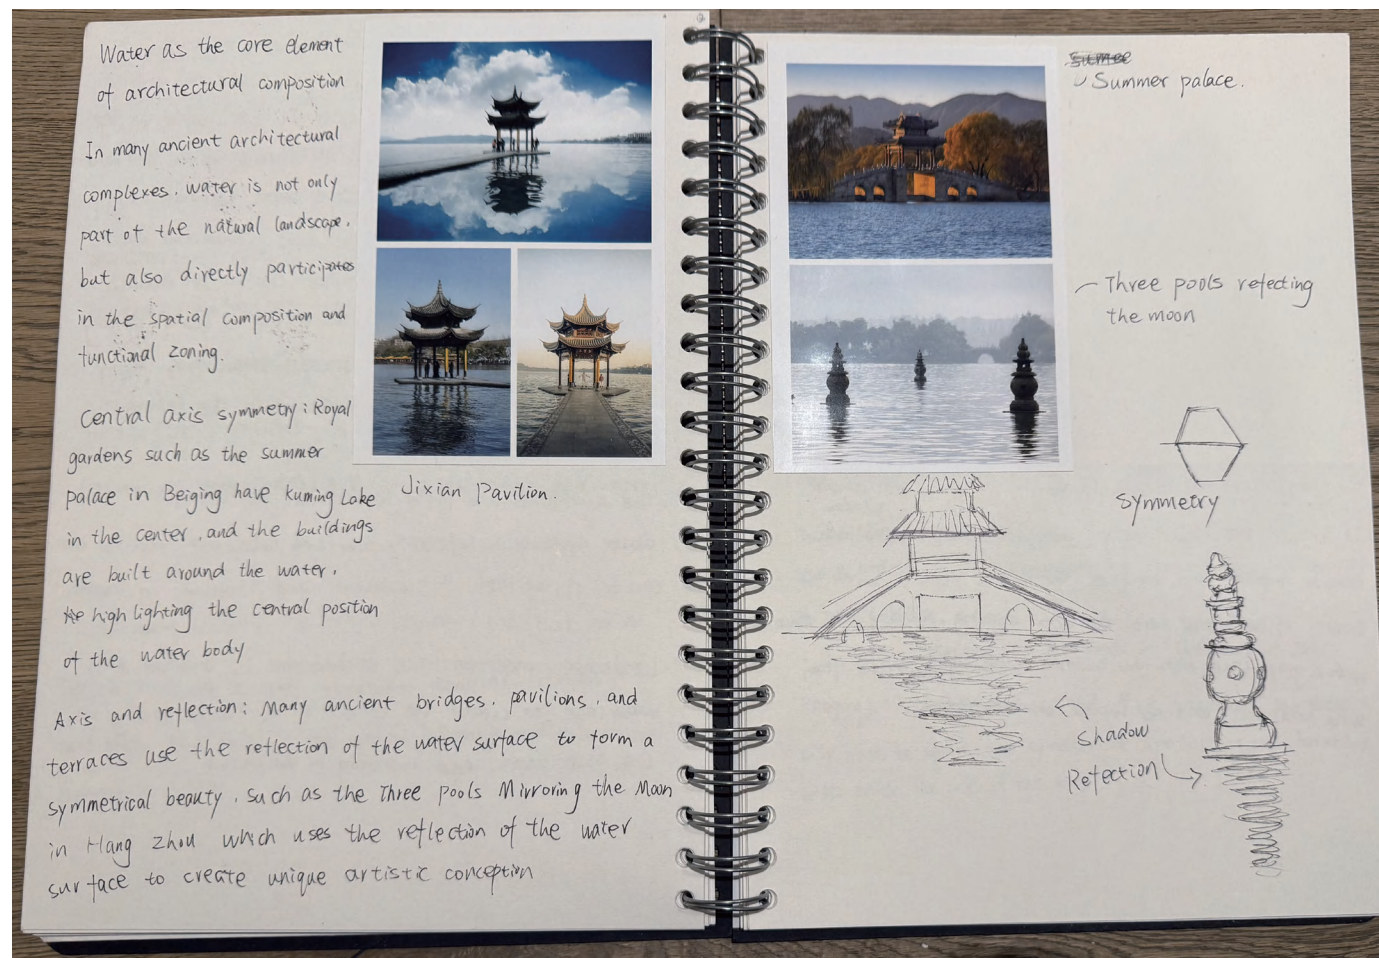 Water as the core element
of architectural composition
In many ancient architectural
complexes. water is not only
part of the natural landscape.
but also directly participates
in the spatial composition and
functional zoning.
Central axis symmetry: Royal
gardens such as the summer
palace in Beiging have kuming Lake
in the center, and the buildings
are built around the water.
highlighting the central position
of the water body
Axis and reflection: Many ancient bridges. pavilions. and
terraces use the reflection of the water surface to form a
symmetrical beauty. such as the Three pools Mirroring the Moon
in Hang Zhou which uses the reflection of the water
surface to create unique artistic conception
Jixian Pavilion.
Summer palace.
Three pools refecting
the moon
Symmetry
Shadow
Refection